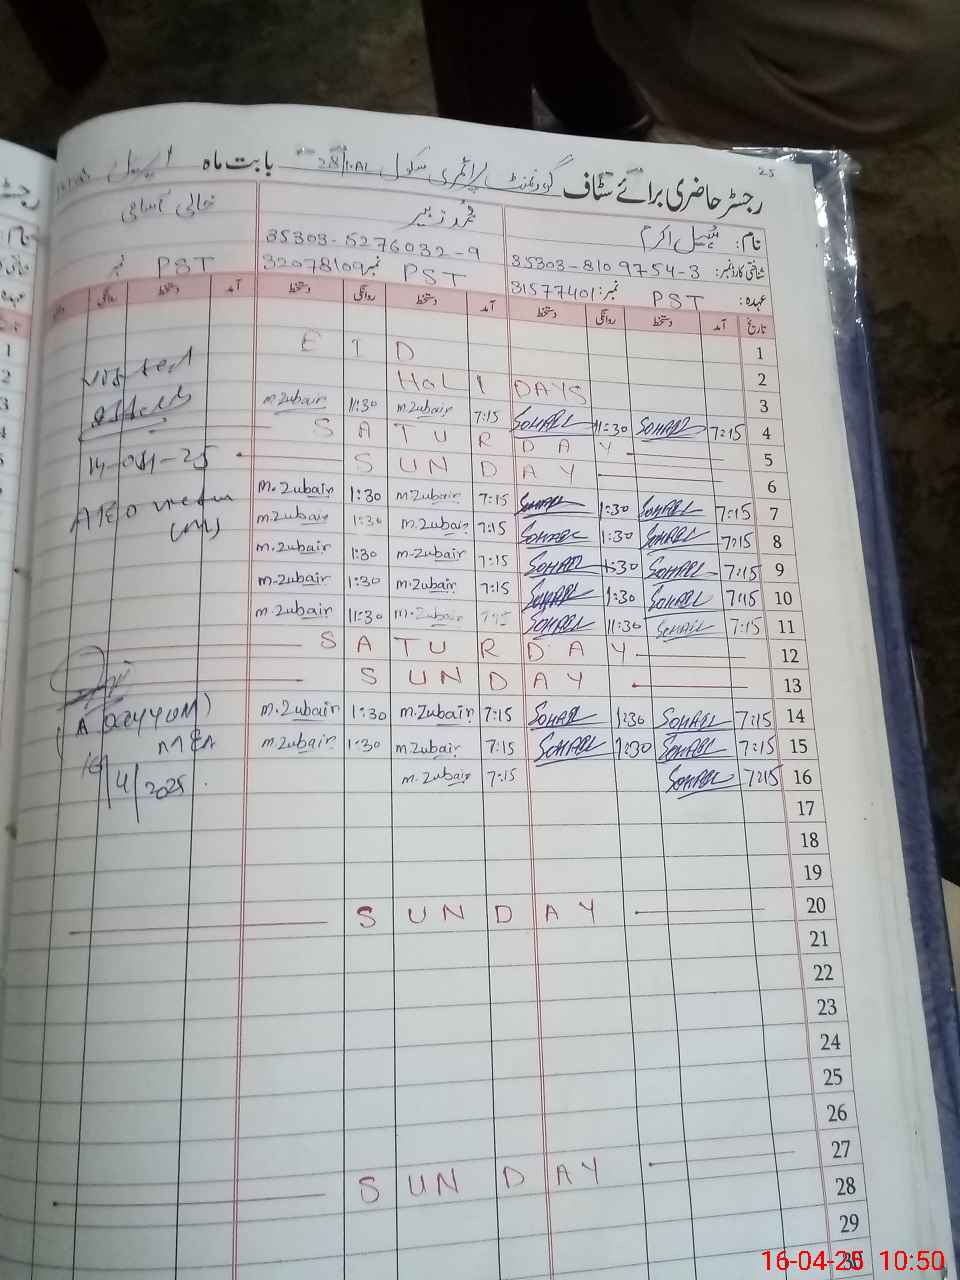 25
رجسٹر حاضری برائے سٹاف گورنمنٹ پرائمری سکول 28/1.A1 بابت ماہ اپریل
نام: سہیل اکرم زبیر خالی آسامی
شناختی کارڈ نمبر: 35303-8109754-3 35303-5276032-9
عہدہ: PST نمبر: 31577401 PST نمبر 32078109 PST نمبر
تاریخ آمد دستخط روانگی دستخط آمد دستخط روانگی دستخط آمد دستخط روانگی
1 EID
2 HOLIDAYS
3
4 7:15 SOHAIL 11:30 SOHAIL 7:15 m.Zubair 11:30 m.Zubair
5 SATURDAY
6 SUNDAY
7 7:15 SOHAIL 1:30 SOHAIL 7:15 m.Zubair 1:30 m.Zubair
8 7:15 SOHAIL 1:30 SOHAIL 7:15 m.Zubair 1:30 m.Zubair
9 7:15 SOHAIL 1:30 SOHAIL 7:15 m.Zubair 1:30 m.Zubair
10 7:15 SOHAIL 1:30 SOHAIL 7:15 m.Zubair 1:30 m.Zubair
11 7:15 SOHAIL 11:30 SOHAIL 7:15 m.Zubair 11:30 m.Zubair
12 SATURDAY
13 SUNDAY
14 7:15 SOHAIL 1:30 SOHAIL 7:15 m.Zubair 1:30 m.Zubair
15 7:15 SOHAIL 1:30 SOHAIL 7:15 m.Zubair 1:30 m.Zubair
16 7:15 SOHAIL 7:15 m.Zubair
17
18
19
20 SUNDAY
21
22
23
24
25
26
27
28 SUNDAY
29
30
visited
14-04-25
AEO
(A QAYYUM)
MEA
16/4/2025
16-04-25 10:50